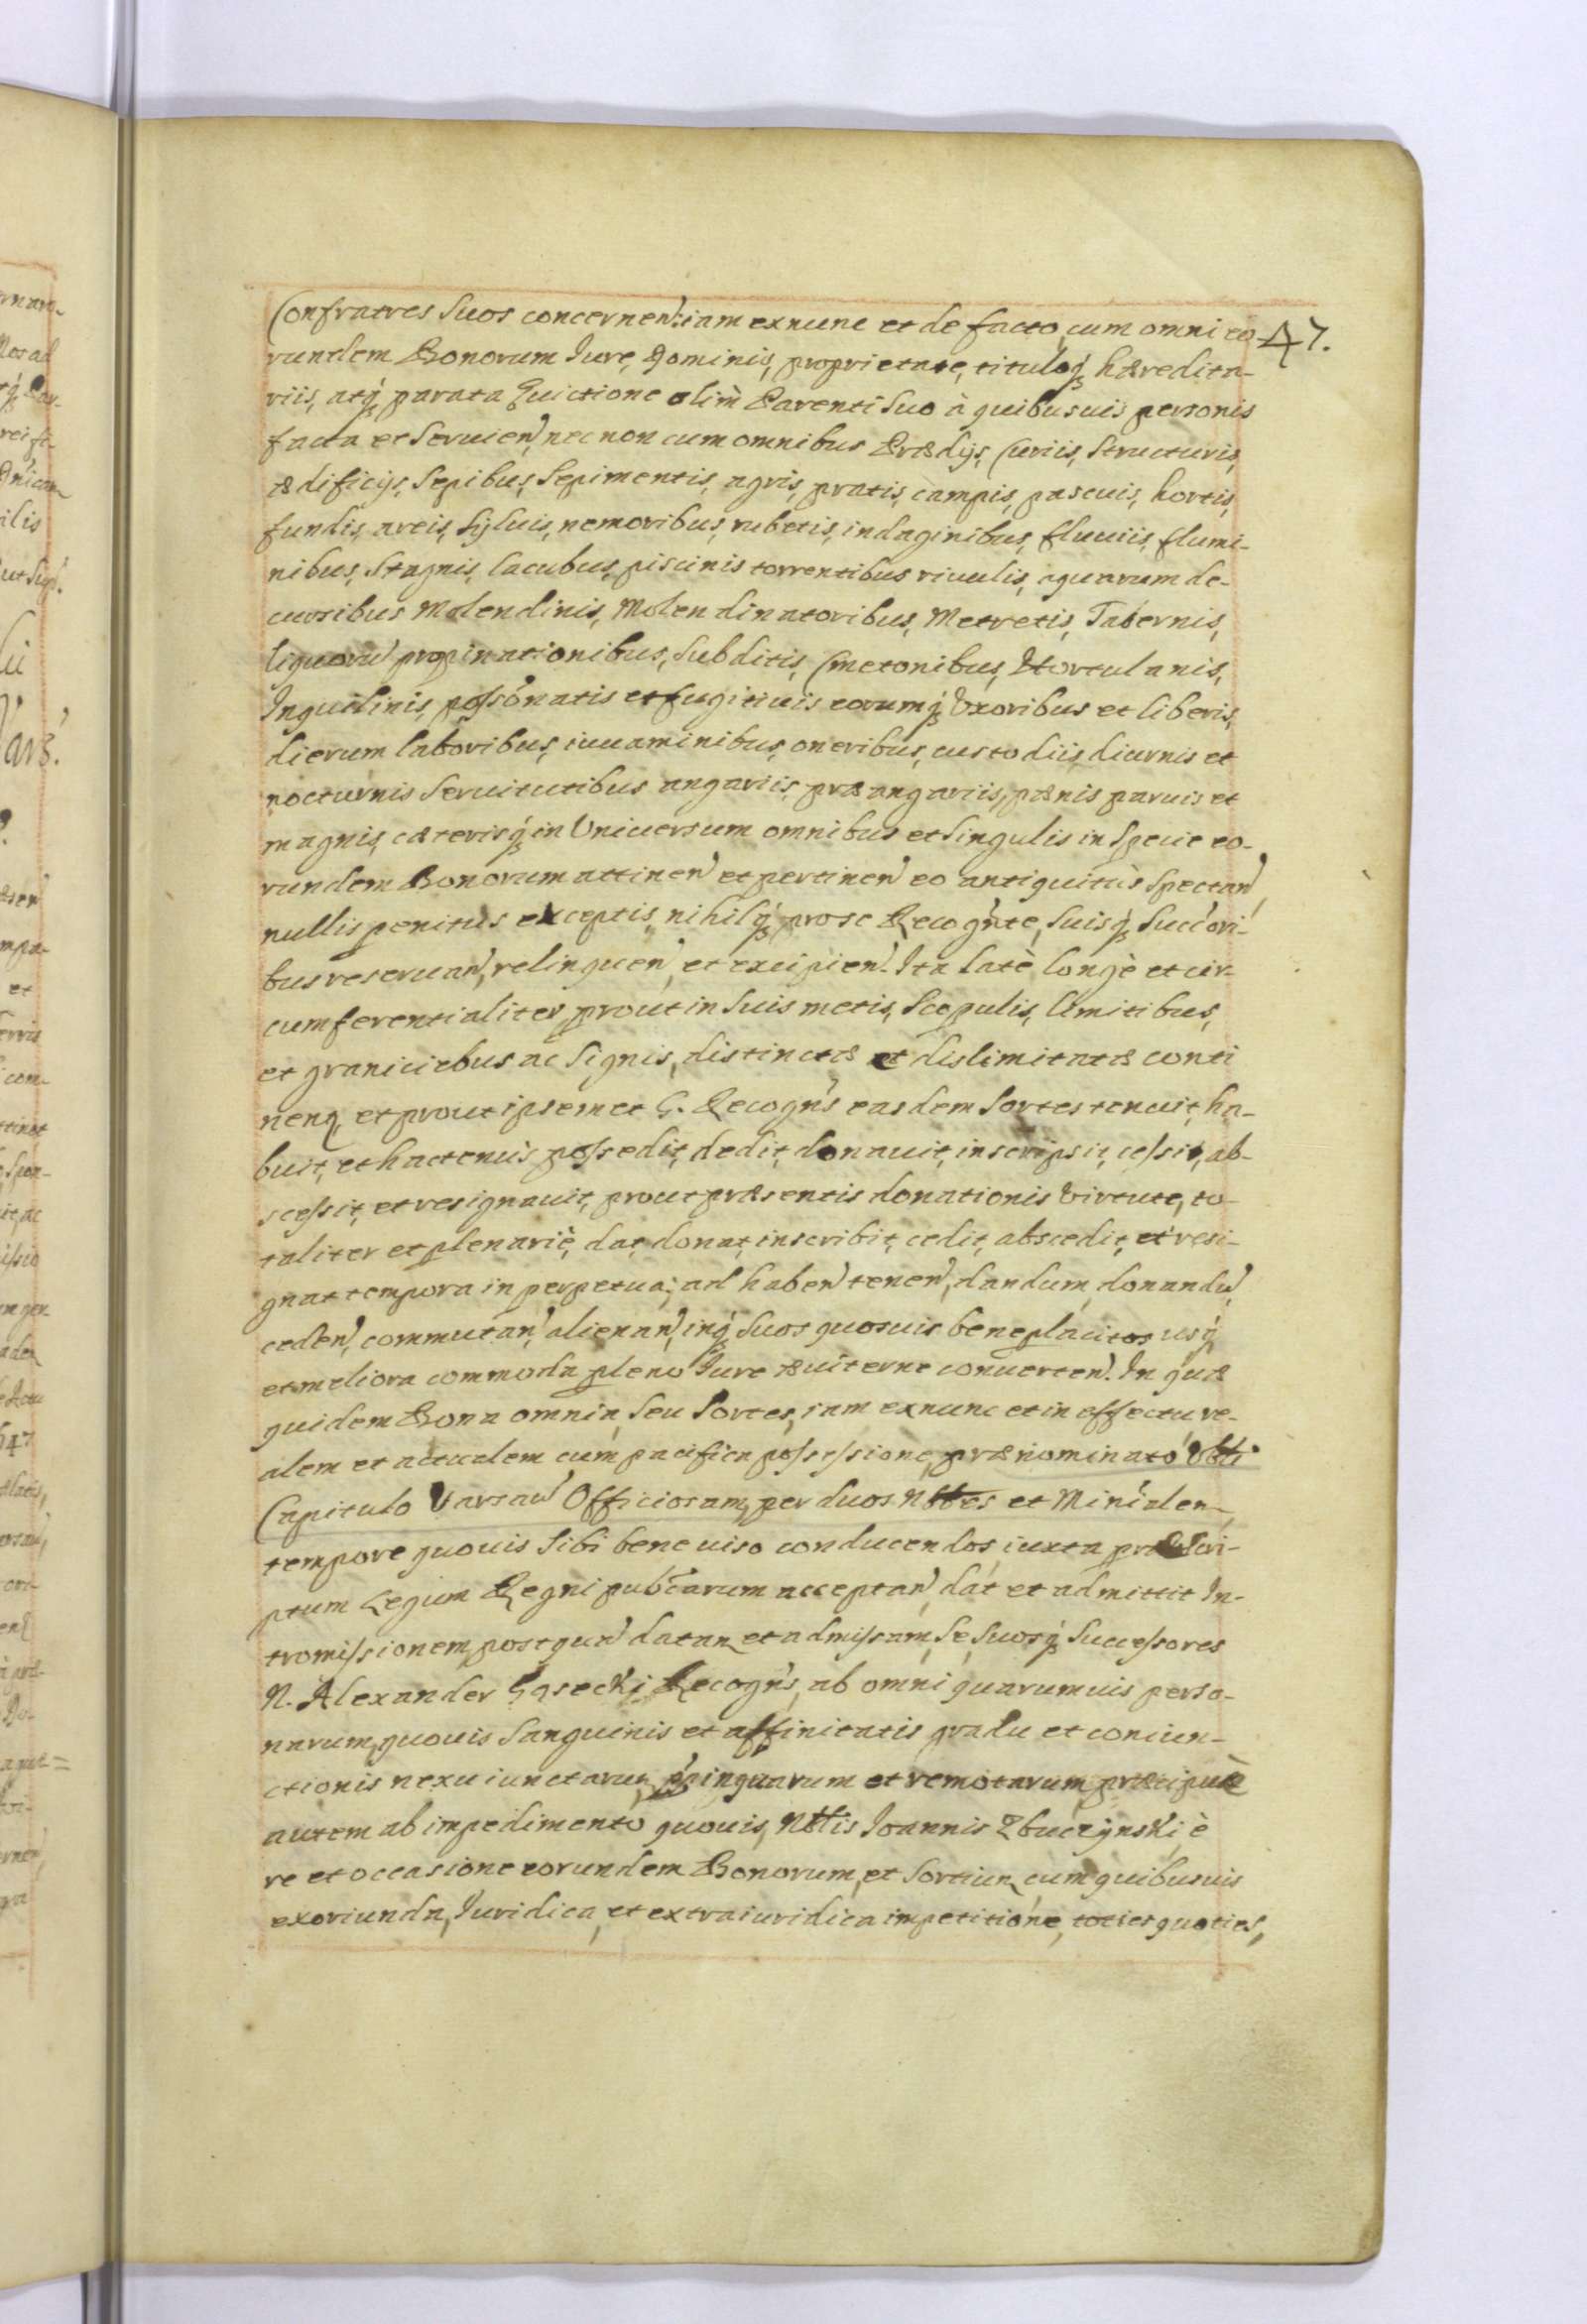 47.
Confratres Suos concernen: iam exnunc et de facto, cum omni eo-
rundem Bonorum Iure, Dominio, proprietate, tituloq́, hæredita-
riis, atq́, parata Euictione olim̀ Parenti Suo à quibusuis personis
facta et Seruien, necnon cum omnibus Prædijs, Curiis, Structuris,
ædificijs, Sepibus, Sepimentis, agris, pratis, campis, pascuis, hortis,
fundis, areis, Syluis, nemoribus, rubetis, indaginibus, fluuiis, flumi-
nibus, Stagnis, lacubus, piscinis torrentibus riuulis, aquarum de-
cursibus Molendinis, Molendinatoribus, Metretis, Tabernis,
liquorũ propinationibus, Subditis, Cmetonibus, Hortulanis,
Inquilinis, possonatis et fugitiuis eorumq́ Vxoribus et liberis,
dierum laboribus, iuuaminibus, oneribus, custodiis, diurnis et
nocturnis Seruitutibus angariis, præangariis, pænis paruis et
magnis, cæterisq́ in Vniuersum omnibus et Singulis in Specie eo-
rundem Bonorum attinen et pertinen eo antiquitùs Spectan,
nullis penitùs exceptis, nihilq́ pro se Recogńte, Suisq́ Succ̃ori-
bus reseruan, relinquen et excipien. Ita latè, longè et cir-
cumferentialiter, prout in Suis metis, Scopulis, limitibus,
et graniciebus ac Signis, distinctæ et dislimitatæ conti
nenq̧ et prout ipsemet G. Recogńs easdem Sortes tenuit, ha-
buit, et hactenùs possedit, dedit, donauit, inscripsit, cessit, ab-
scessit, et resignauit, prout præsentis donationis Virtute, to-
taliter et plenariè, dat, donat, inscribit, cedit, abscedit, et resi-
gnat tempora in perpetua; ad haben tenen, dandum, donandũ
ceden, commutan, alienan, inq́ Suos quosuis beneplacitos usq́
et meliora commoda pleno Iure æuiterne conuerten. In quæ
quidem Bona omnia, Seu Sortes, iam exnunc et in effectu re-
alem et actualem cum pacifica possessione, prænominato Vbli
Capitulo Varsau Officiosam, per duos Nbbes et Minialem
tempore quouis Sibi bene uiso conducendos, iuxta præscri-
ptum Legum Regni publcarum acceptan, dat et admittit In-
tromissionem, postquã datam et admissam, Se, Suosq́ Successores
N. Alexander Gąsecki Recogńs, ab omni quarumuis perso-
narum, quouis Sanguinis et affinitatis gradu et coniun-
ctionis nexu iunctarum, ṕpinquarum et remotarum, præcipuè
autem ab impedimento quouis, Nblis Ioannis Zbuczynski è
re et occasione eorundem Bonorum, et Sortium, cum quibusuis
exoriunda, Iuridica, et extraiuridica impetitione, toties quoties,